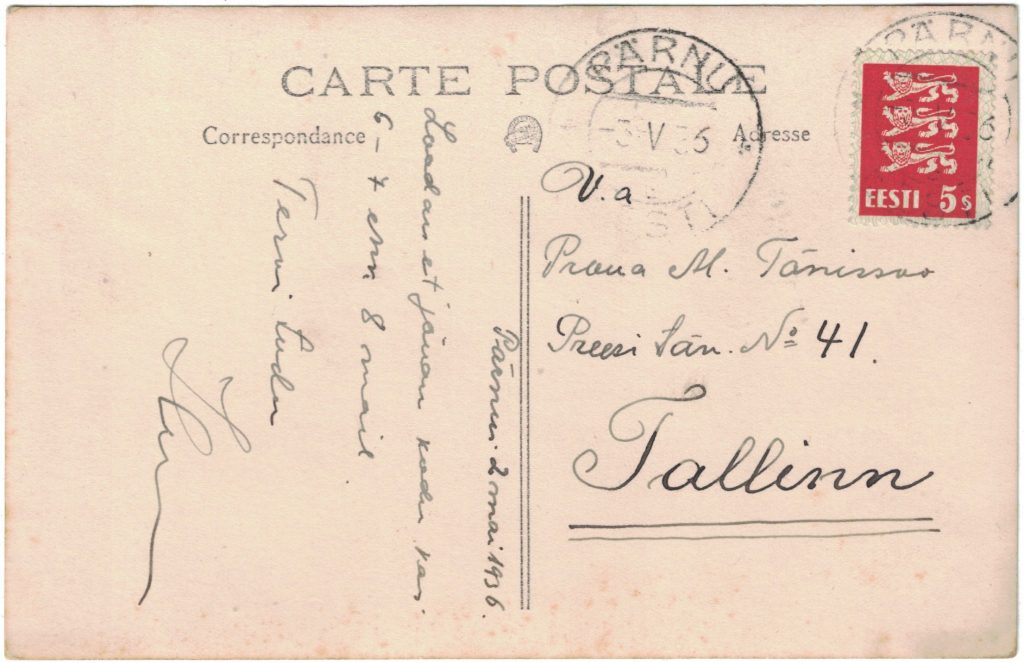 CARTE POSTALE
Correspondance
Adresse
PÄRNU
-3 V 36
EESTI
EESTI 5 s
Pärnus 2 mai 1936.
Loodan et jõuan kodu kas
6 – 7 ehk 8 mail
Tervitudu
V. a
Proua M. Tõnisson
Preesi tän. No 41.
Tallinn